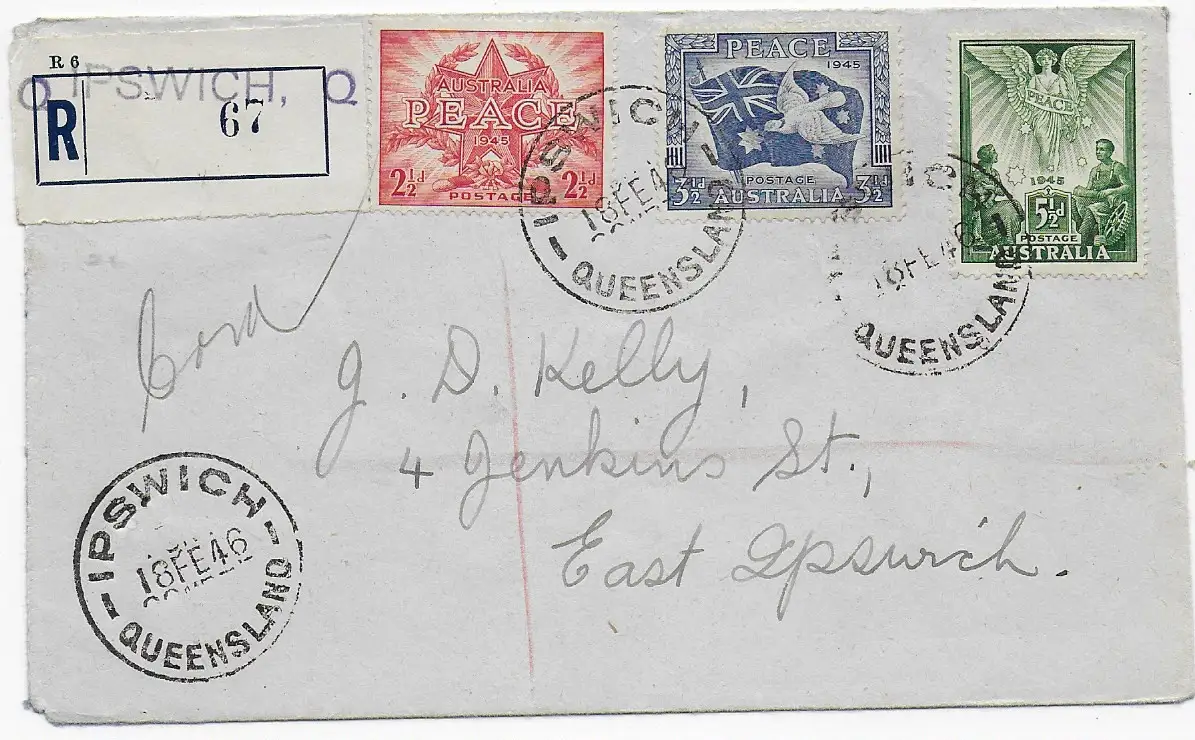 R 6
Q IPSWICH, Q
R 67
AUSTRALIA
PEACE
1945
2½d 2½d
POSTAGE
PEACE
1945
POSTAGE
3½d AUSTRALIA 3½d
PEACE
1945
5½d
POSTAGE
AUSTRALIA
IPSWICH
18FE46
QUEENSLAND
IPSWICH
18FE46
QUEENSLAND
G. D. Kelly,
4 Jenkins St.,
East Ipswich.
IPSWICH
18FE46
QUEENSLAND